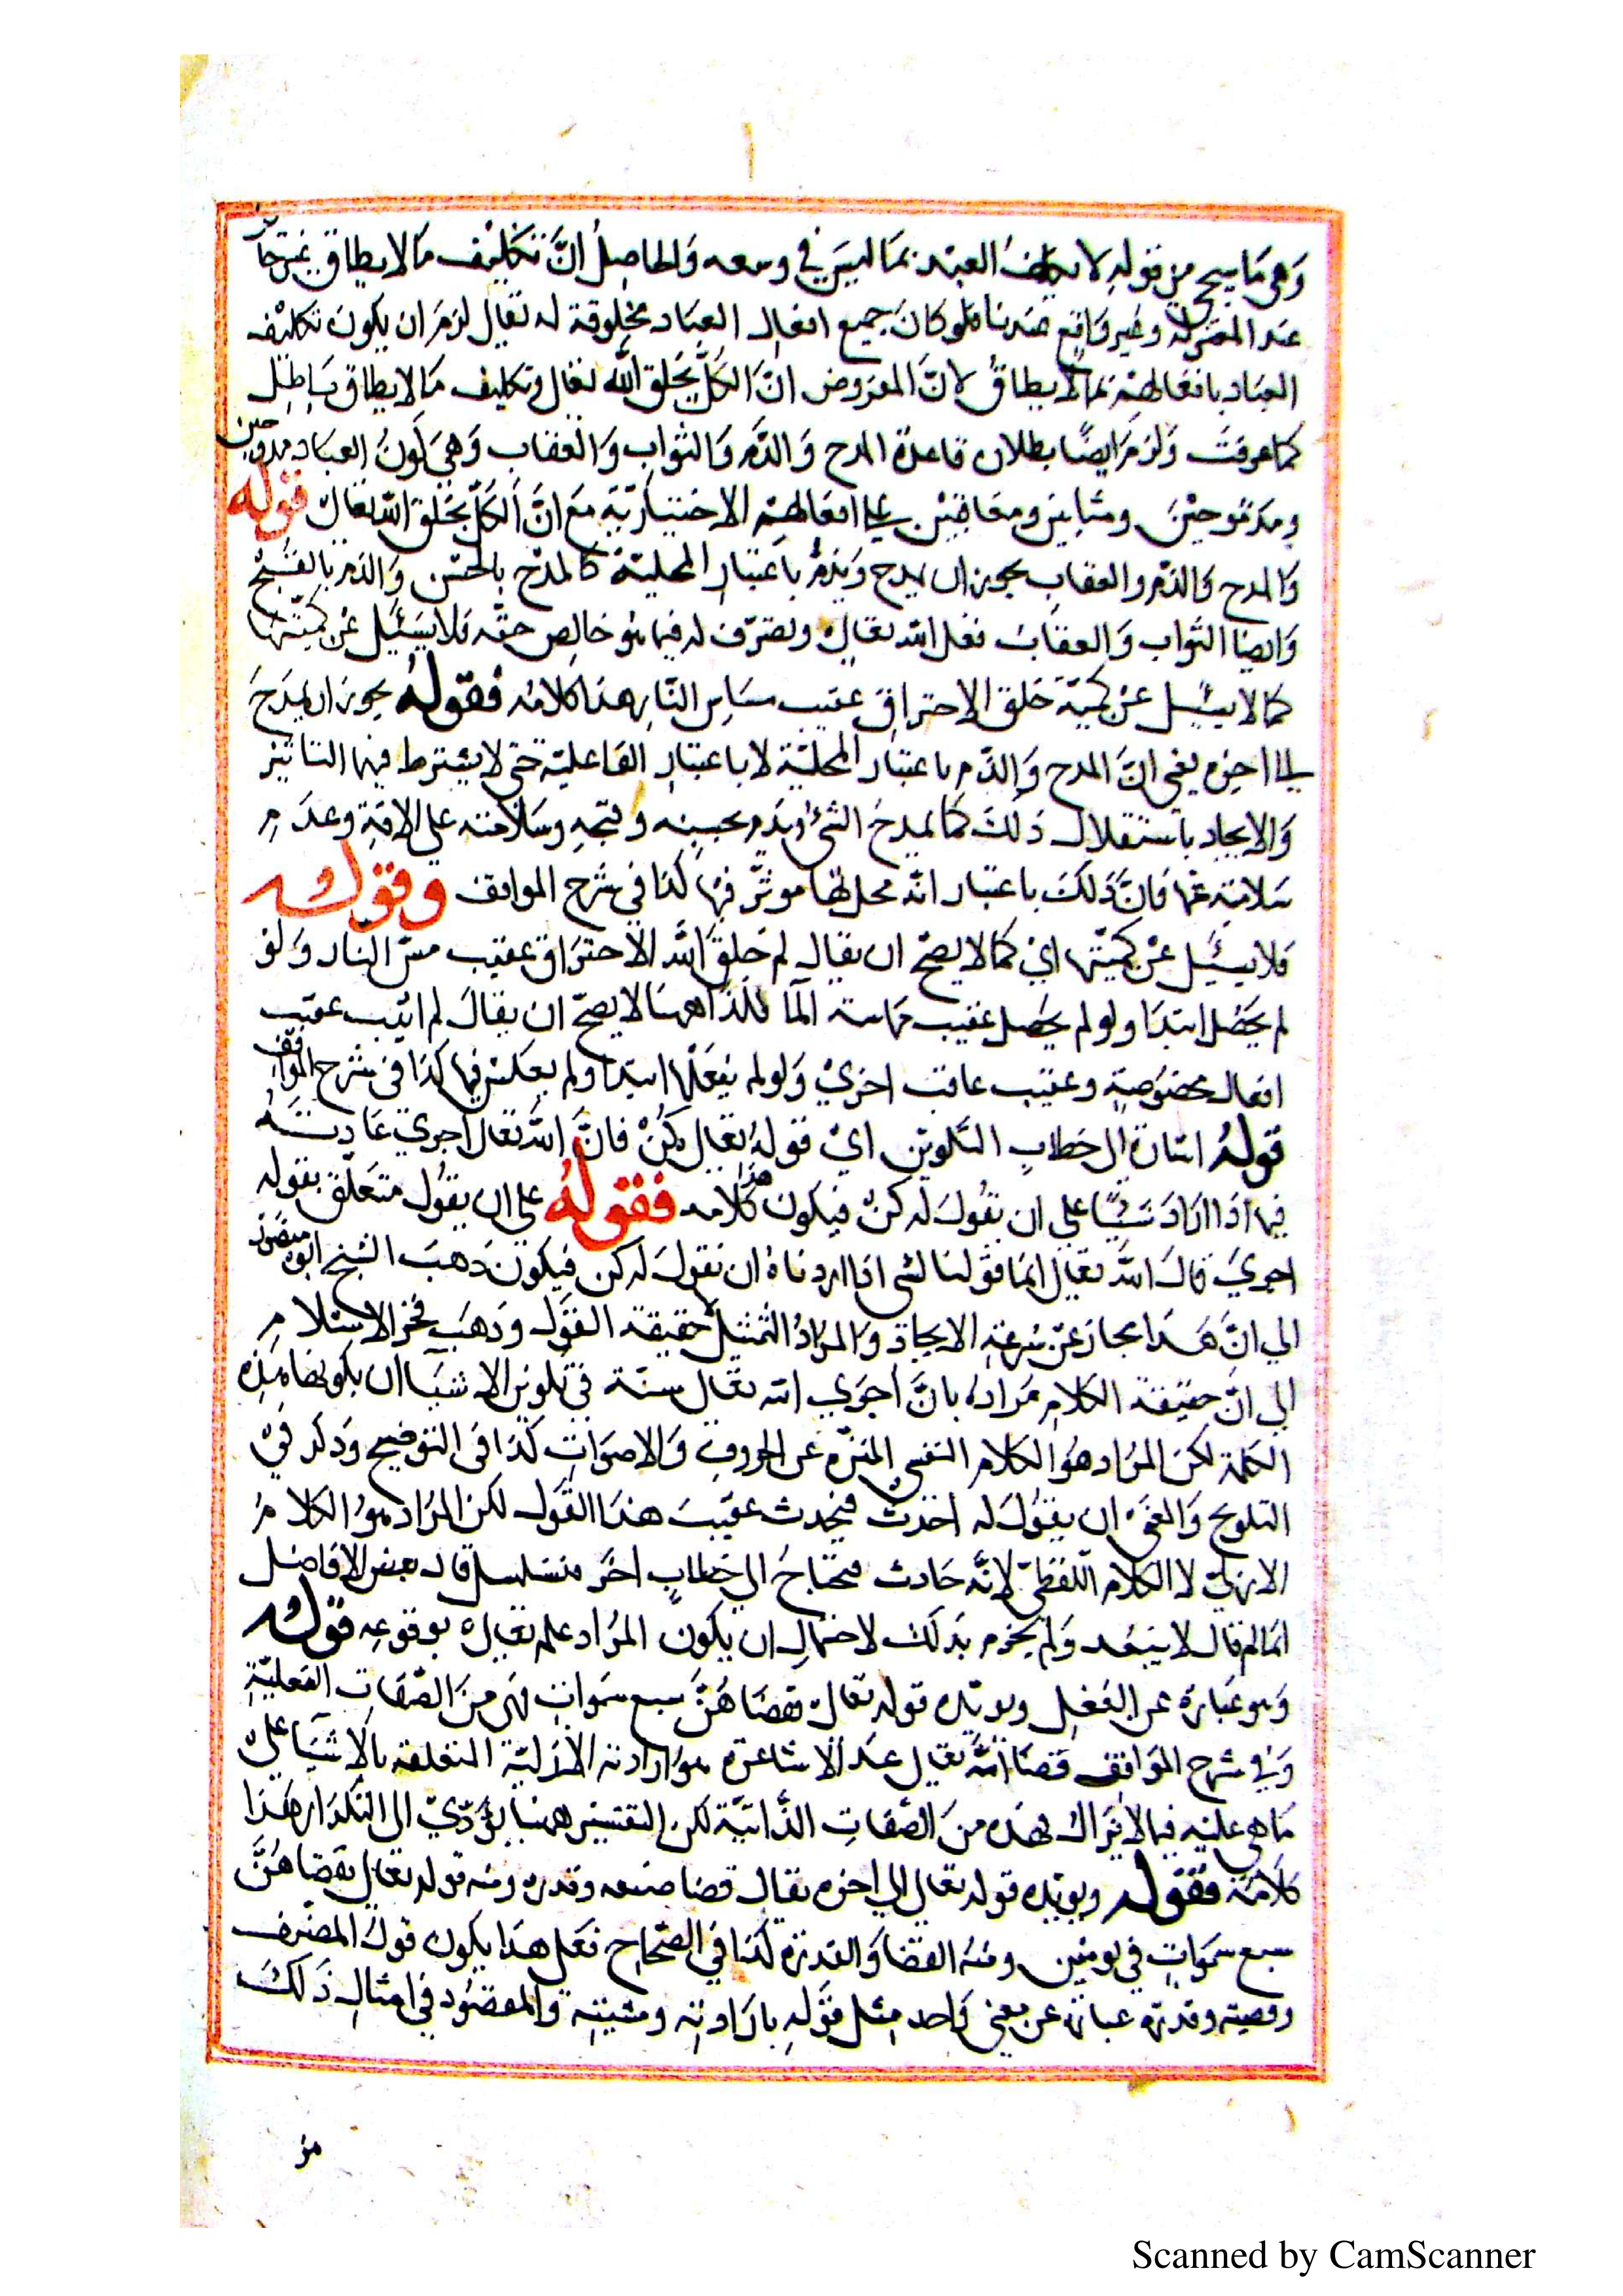 وهي ما سيجي من قوله لا يكلف العبد بما ليس في وسعه والحاصل ان تكليف ما لا يطاق غير جائز
عند المعتزلة وغير واقع عندنا فلو كان جميع افعال العباد مخلوقة له تعالى لزم ان يكون تكليف
العباد بافعالهم بما لا يطاق لان المفروض ان الكل بخلق الله تعالى وتكليف ما لا يطاق باطل
كما عرفت ولزم ايضا بطلان قاعدة المدح والذم والثواب والعقاب وهي كون العباد ممدوحين
ومذموحين ومثابين ومعاقبين على افعالهم الاختيارية مع ان الكل بخلق الله تعالى قوله
والمدح والذم والعقاب يجوز ان يمدح ويذم باعتبار المحلية كالمدح بالحسن والذم بالقبح
وايضا الثواب والعقاب فعل الله تعالى وتصرف له فيما هو خالص حقه فلا يسئل عن كميتها
كما لا يسئل عن كمية خلق الاحتراق عقيب مساس النار هذا كلامه فقوله يجوز ان يمدح
الى اخره يعني ان المدح والذم باعتبار المحلية لا باعتبار الفاعلية حتى لا يشترط فيهما التاثير
والايجاد باستقلال ذلك كما يمدح الشئ ويذم بحسنه وقبحه وسلامته على الافة وعدم
سلامته عنها فان ذلك باعتبار انه محل لها موثر فيها كذا في شرح المواقف وقوله
فلا يسئل عن كميتها اي كما لا يصح ان يقال لم خلق الله الاحتراق عقيب مس النار ولو
لم يحصل ابتدا ولو لم يحصل عقيب مماسة الما فلذا ههنا لا يصح ان يقال لم اثيب عقيب
افعال مخصوصة وعقيب عاقب اخرى ولو لم يفعلها ابتدا ولم يعكس فيها كذا في شرح المواقف
قوله اشارة الى خطاب التكوين اي قوله تعالى كن فان الله تعالى اجرى عادته
فيما اذا اراد شيئا على ان يقول له كن فيكون هذا كلامه فقوله على ان يقول متعلق بقوله
اجرى قال الله تعالى انما قولنا لشئ اذا اردناه ان نقول له كن فيكون ذهب الشيخ ابو منصور
الى ان هذا مجاز عن سرعة الايجاد والمراد التمثيل لا حقيقة القول وذهب فخر الاسلام
الى ان حقيقة الكلام مراده بان اجرى الله تعالى سنة في تكوين الاشيا ان يكونها بهذه
الكلمة لكن المراد هو الكلام النفسي المنزه عن الحروف والاصوات كذا في التوضيح وذكر في
التلويح والمعنى ان يقول له احدث فيحدث عقيب هذا القول لكن المراد هو الكلام
الازلي لا الكلام اللفظي لانه حادث فيحتاج الى خطاب اخر فيتسلسل قال بعض الافاضل
انما لم قال لا يبعد ولم يجزم بذلك لاحتمال ان يكون المراد علمه تعالى بوقوعه قوله
وهو عبارة عن الفعل ويويده قوله تعالى فقضاهن سبع سموات فهي من الصفات الفعلية
وفي شرح المواقف قضا الله تعالى عند الاشاعرة هو ارادته الازلية المتعلقة بالاشيا على
ما هي عليه فيما لا يزال فهذه من الصفات الذاتية لكن التفسير ههنا يؤدي الى التكرار هذا
كلامه فقوله ويويده قوله تعالى الى اخره يقال قضا صنعه وقدره ومنه قوله تعالى فقضاهن
سبع سموات في يومين ومنه القضا والقدرة كذا في الصحاح فعلى هذا يكون قول المصنف
وقضيته وقدرته عبارة عن معنى واحد مثل قوله بارادته ومشيته والمقصود في امثال ذلك
Scanned by CamScanner